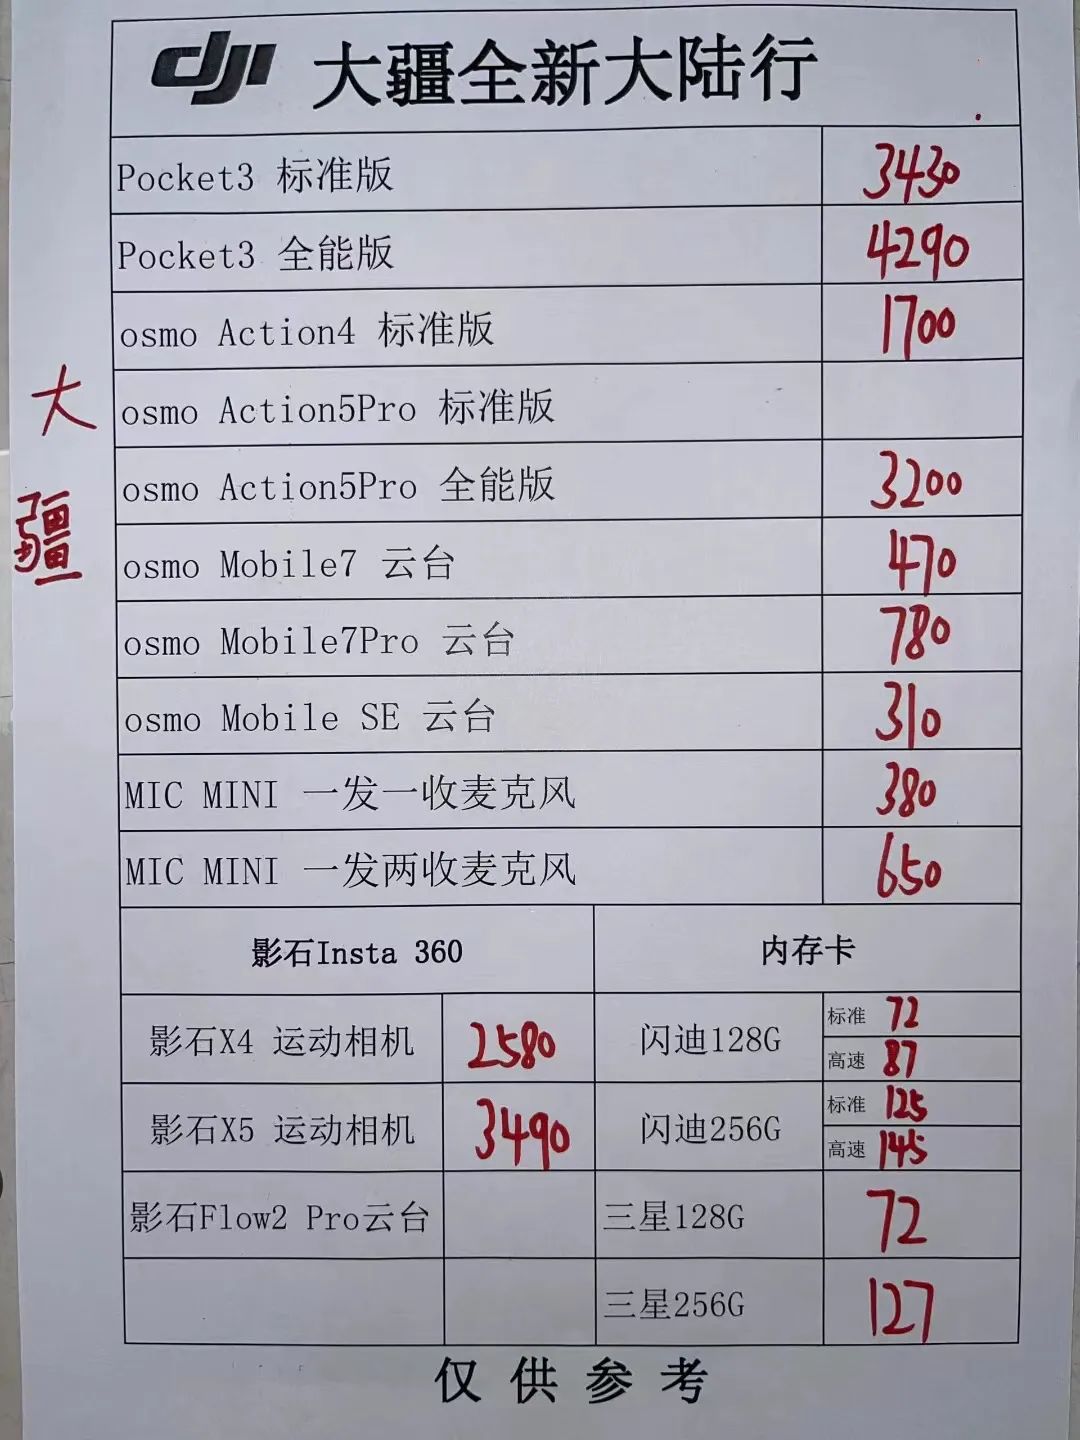 dji 大疆全新大陆行
Pocket3 标准版 3430
Pocket3 全能版 4290
osmo Action4 标准版 1700
osmo Action5Pro 标准版
osmo Action5Pro 全能版 3200
osmo Mobile7 云台 470
osmo Mobile7Pro 云台 780
osmo Mobile SE 云台 310
MIC MINI 一发一收麦克风 380
MIC MINI 一发两收麦克风 650
大
疆
影石Insta 360 内存卡
影石X4 运动相机 2580 闪迪128G 标准 72
高速 87
影石X5 运动相机 3490 闪迪256G 标准 125
高速 145
影石Flow2 Pro云台 三星128G 72
三星256G 127
仅供参考